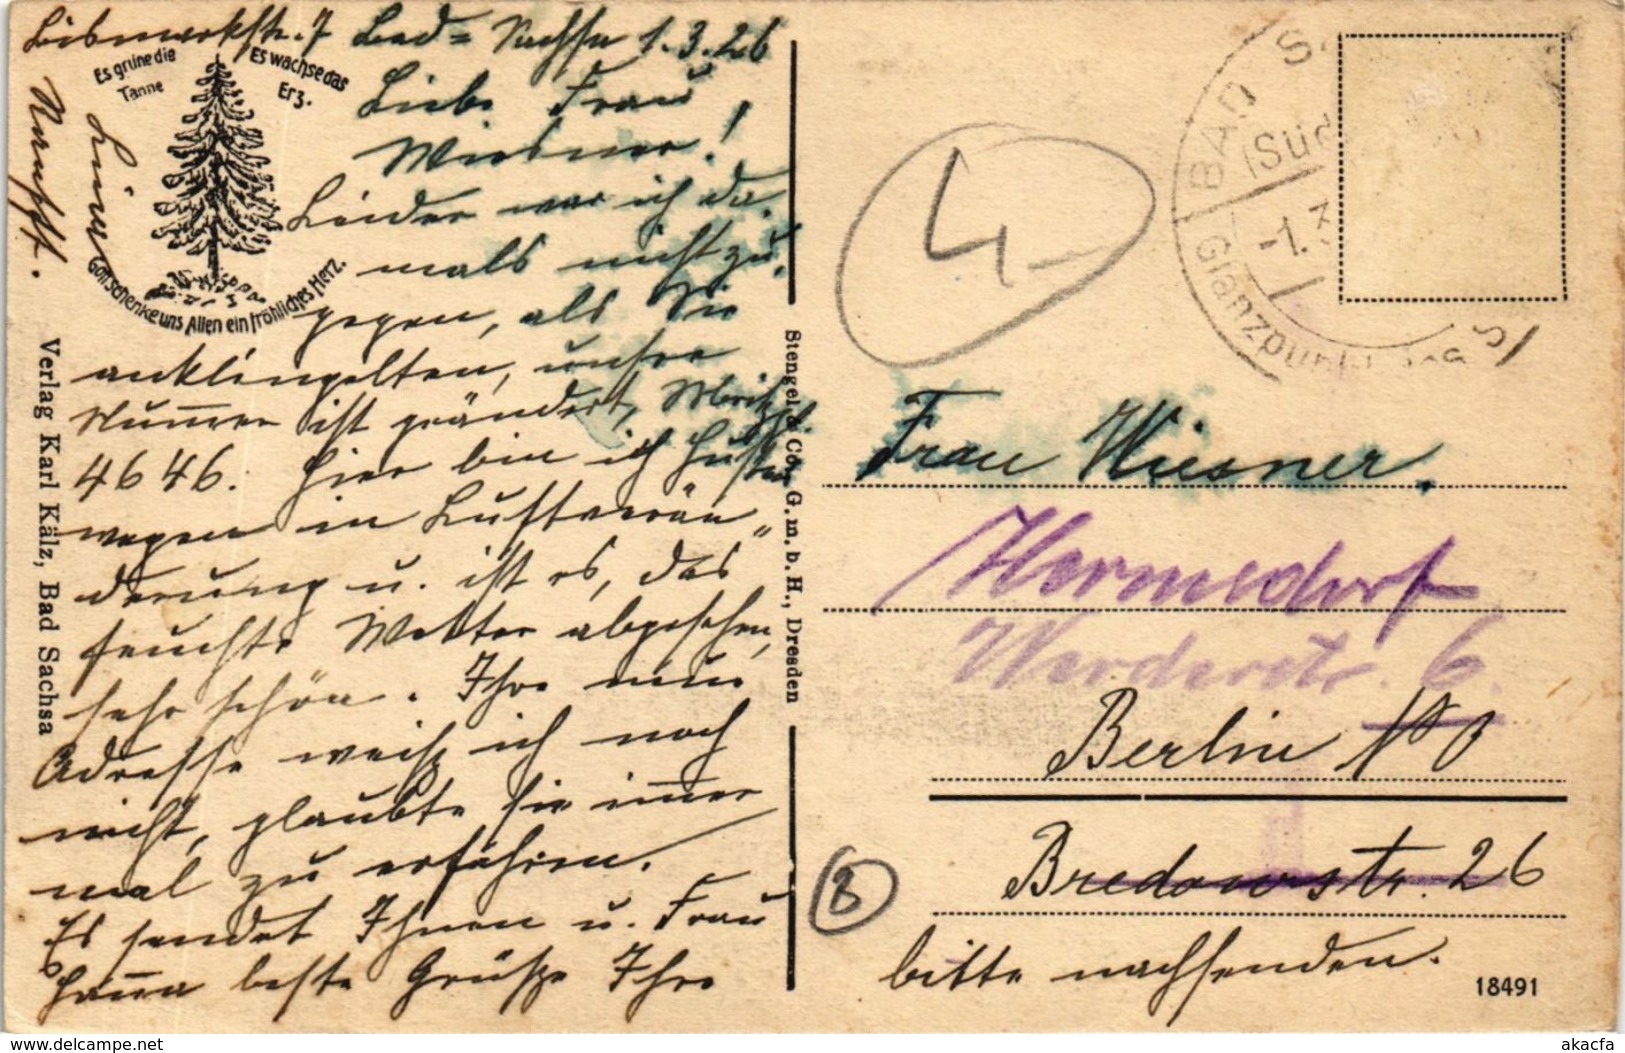 Bismarckstr. 7 Bad-Sachsa 1.3.26
Es grüne die
Tanne
Es wachse das
Erz.
Gott schenke uns Allen ein fröhliches Herz.
Liebe Frau
Wiesner!
Leider war ich da-
mals nicht zu-
gegen, als Sie
anklingelten, unsre
Nummer ist geändert, Moritzpl.
4646. Hier bin ich Husten
wegen in Luftverän„
derung u. ist es, das
feuchte Wetter abgesehen,
sehr schön. Ihre neue
Adresse weiß ich noch
nicht, glaubte sie immer
mal zu erfahren.
Es sendet Ihnen u. Frau
Hanna beste Grüße Ihre
Verlag Karl Kälz, Bad Sachsa
Stengel & Co., G.m.b.H., Dresden
4
BAD S
(Süd
-1.3
Glanzpunkt des S
Frau Wiesner.
Hermsdorf
Werderstr. 6.
Berlin NO
Bredowstr. 26
bitte nachsenden.
8
18491
akacfa